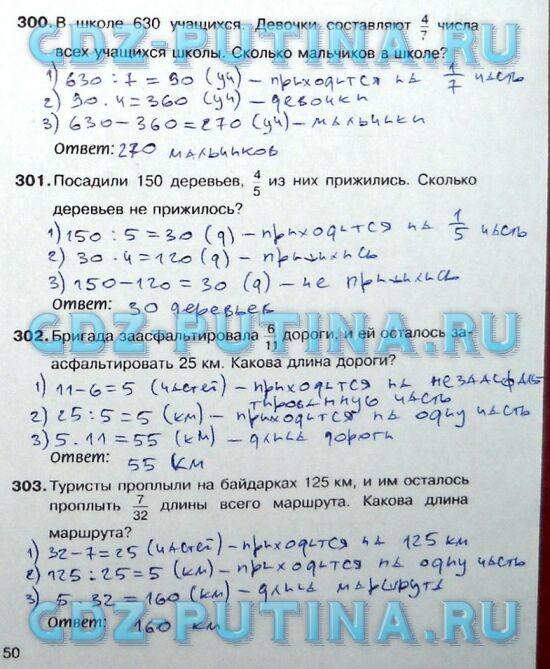 300. В школе 630 учащихся. Девочки составляют 4/7 числа
всех учащихся школы. Сколько мальчиков в школе?
1) 630 : 7 = 90 (уч) – приходится на 1/7 часть
2) 90 . 4 = 360 (уч) – девочки
3) 630 – 360 = 270 (уч) – мальчики
Ответ: 270 мальчиков
301. Посадили 150 деревьев, 4/5 из них прижились. Сколько
деревьев не прижилось?
1) 150 : 5 = 30 (д) – приходится на 1/5 часть
2) 30 . 4 = 120 (д) – прижились
3) 150 – 120 = 30 (д) – не прижились
Ответ: 30 деревьев
302. Бригада заасфальтировала 6/11 дороги, и ей осталось за-
асфальтировать 25 км. Какова длина дороги?
1) 11 – 6 = 5 (частей) – приходится на незаасфаль
тированную часть
2) 25 : 5 = 5 (км) – приходится на одну часть
3) 5 . 11 = 55 (км) – длина дороги
Ответ: 55 км
303. Туристы проплыли на байдарках 125 км, и им осталось
проплыть 7/32 длины всего маршрута. Какова длина
маршрута?
1) 32 – 7 = 25 (частей) – приходится на 125 км
2) 125 : 25 = 5 (км) – приходится на одну часть
3) 5 . 32 = 160 (км) – длина маршрута
Ответ: 160 км
50
GDZ-PUTINA.RU
GDZ-PUTINA.RU
GDZ-PUTINA.RU
GDZ-PUTINA.RU
GDZ-PUTINA.RU